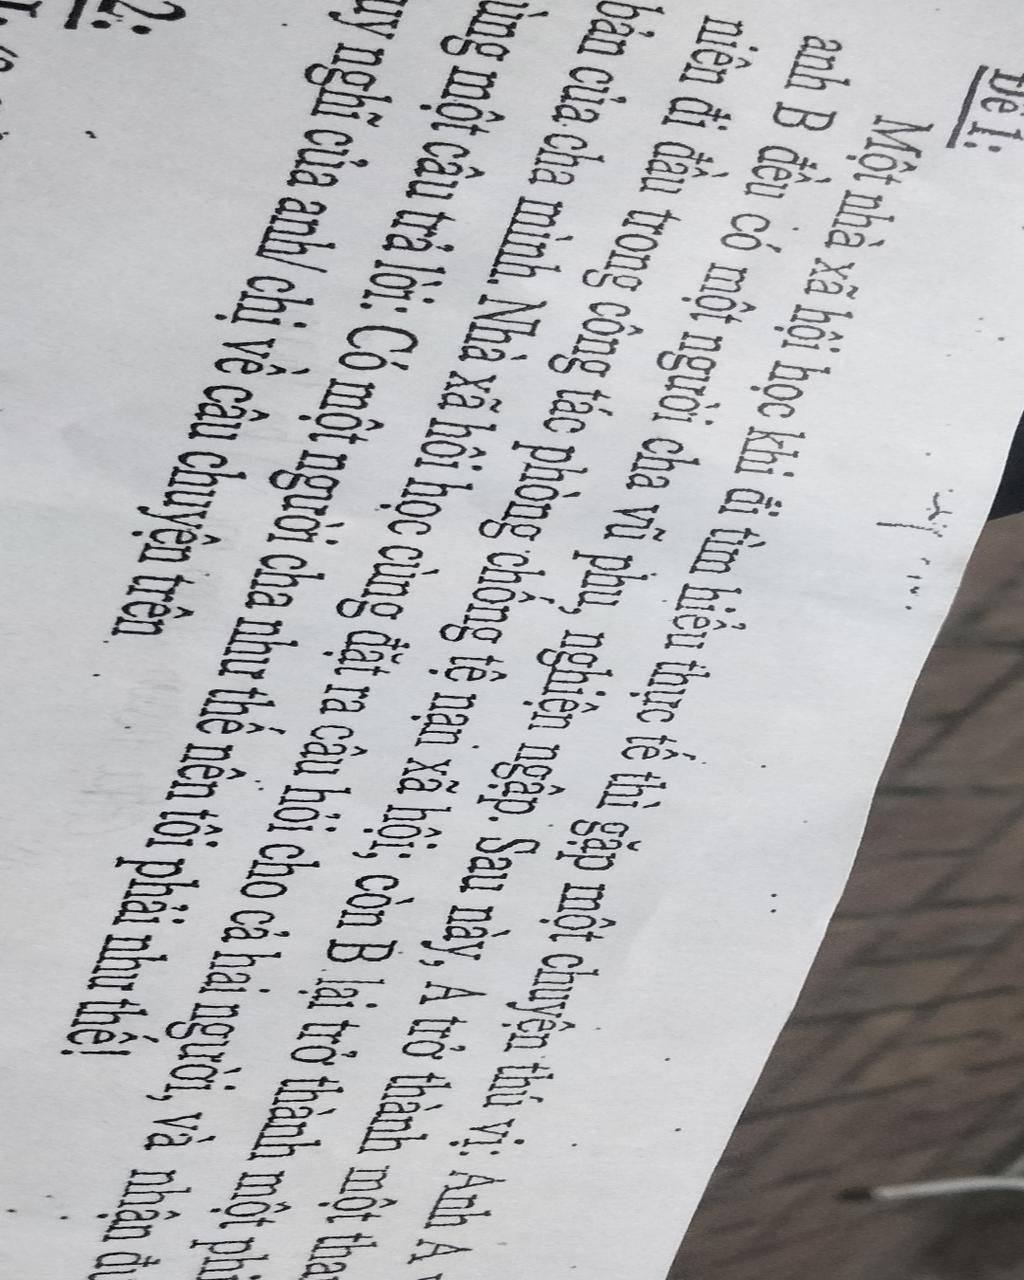 Đề 1:
Một nhà xã hội học khi đi tìm hiểu thực tế thì gặp một chuyện thú vị: Anh A
anh B đều có một người cha vũ phu, nghiện ngập. Sau này, A trở thành một
niên đi đầu trong công tác phòng chống tệ nạn xã hội; còn B lại trở thành một
bản của cha mình. Nhà xã hội học cùng đặt ra câu hỏi cho cả hai người, và nhận
một câu trả lời: Có một người cha như thế nên tôi phải như thế!
nghĩ của anh/ chị về câu chuyện trên
2: